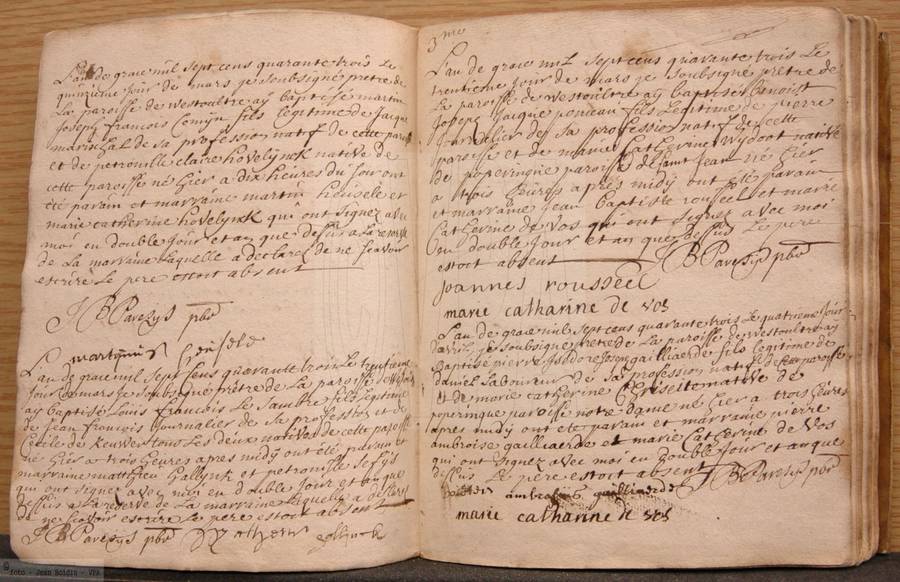 L'an de grace mil sept cens quarante trois le
quinzieme jour de mars je soubsigné prêtre de
La paroisse de westoultre ay baptisé martin
Joseph francois Comyn fils legitime de Jacque
marischal de sa profession natif de cette paroisse
et de petronille claire hovelynck native de
cette paroisse né hier a dix heures du soir ont
été parain et marraine martin heusele et
marie catherine hovelynck qui ont signez avec
moi en double Jour et an que dessus a la reserve
de La marraine laquelle a declaré de ne scavoir
escrire Le pere estoit absent
J B Parezys pbr
martynus heusele
L'an de grace mil sept cens quarante trois Le trentieme
Jour de mars je soubsigné prêtre de La paroisse de westoultre
ay baptisé Louis francois Le Sambre fils legitime
de Jean francois journalier de sa profession et de
Cecile de Keuwer tous Les deux natives de cette paroisse
né hier a trois heures apres midy ont été parain et
marraine matthieu Gallynk et petronille
qui ont signez avec moi en double Jour et an que
dessus a la reserve de La marraine Laquelle a declaré
de ne scavoir escrire Le pere estoit absent
J B Parezys pbr
3me
L'an de grace mil sept cens quarante trois Le
trentieme Jour de mars je soubsigné prêtre de
La paroisse de westoultre ay baptisé benoist
Joseph Jacque fils Legitime de pierre
Journalier de sa profession natif de cette
paroisse et de marie Catherine Wydoot native
de poperingue paroisse de saint Jean né hier
a trois heures apres midy ont été parain
et marraine Jean baptiste roussel et marie
Catherine de Vos qui ont signez avec moi
en double Jour et an que dessus Le pere
estoit absent J B Parezys pbr
Joannes roussel
marie catharine de vos
L'an de grace mil sept cens quarante trois Le quatrieme Jour
d'avril je soubsigné prêtre de La paroisse de westoultre ay
baptisé pierre Isidore Joseph gailliaerde fils legitime de
daniel Laboureur de sa profession natif de cette paroisse
et de marie catherine native de
poperinque paroisse notre dame né hier a trois heures
apres midy ont été parain et marraine pierre
ambroise gailliaerde et marie Catherine de Vos
qui ont signez avec moi en double Jour et an que
dessus Le pere estoit absent J B Parezys pbr
pieter ambrosius gailliaerde
marie catharine de vos
foto - Jean Boidin - VVF